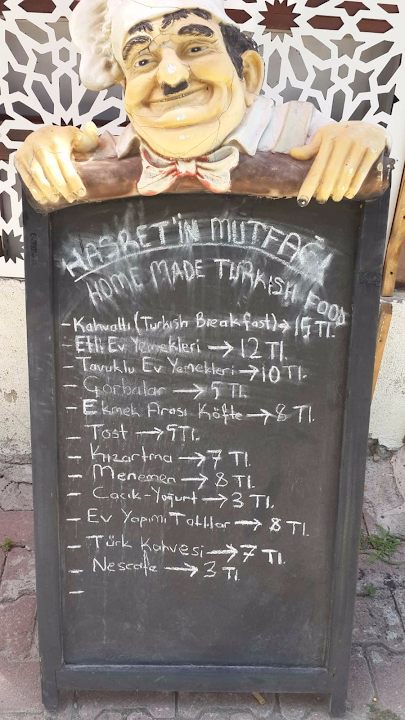 HASRET'İN MUTFAĞI
HOME MADE TURKISH FOOD
- Kahvaltı (Turkish Breakfast) → 15 Tl.
- Etli Ev Yemekleri → 12 Tl.
- Tavuklu Ev Yemekleri → 10 Tl.
- Çorbalar → 5 Tl.
- Ekmek Arası Köfte → 8 Tl.
- Tost → 5 Tl.
- Kızartma → 7 Tl.
- Menemen → 8 Tl.
- Cacık - Yoğurt → 3 Tl.
- Ev Yapımı Tatlılar → 8 Tl.
- Türk Kahvesi → 7 Tl.
- Nescafe → 3 Tl
-